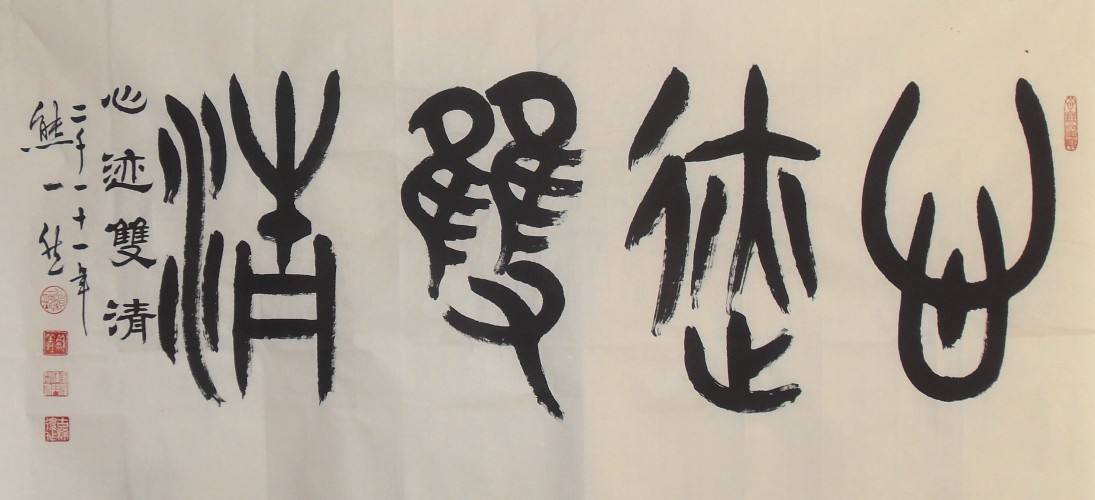 心迹雙清
心迹雙清
二千一十一年
熊一然